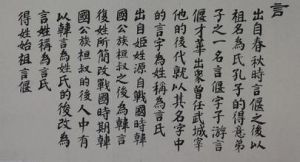 言
出自春秋時言偃之後以
祖名為氏孔子的得意弟
子之一名言偃字子游言
偃才華出眾曾任武城宰
他的後代就以其名字中
的言字為姓稱為言氏
出自姬姓源自戰國時韓
國公族桓叔之後為韓言
復姓所簡改戰國時期韓
國公族桓叔的後人中有
以韓言為姓氏的後改為
言姓稱為言氏
得姓始祖言偃